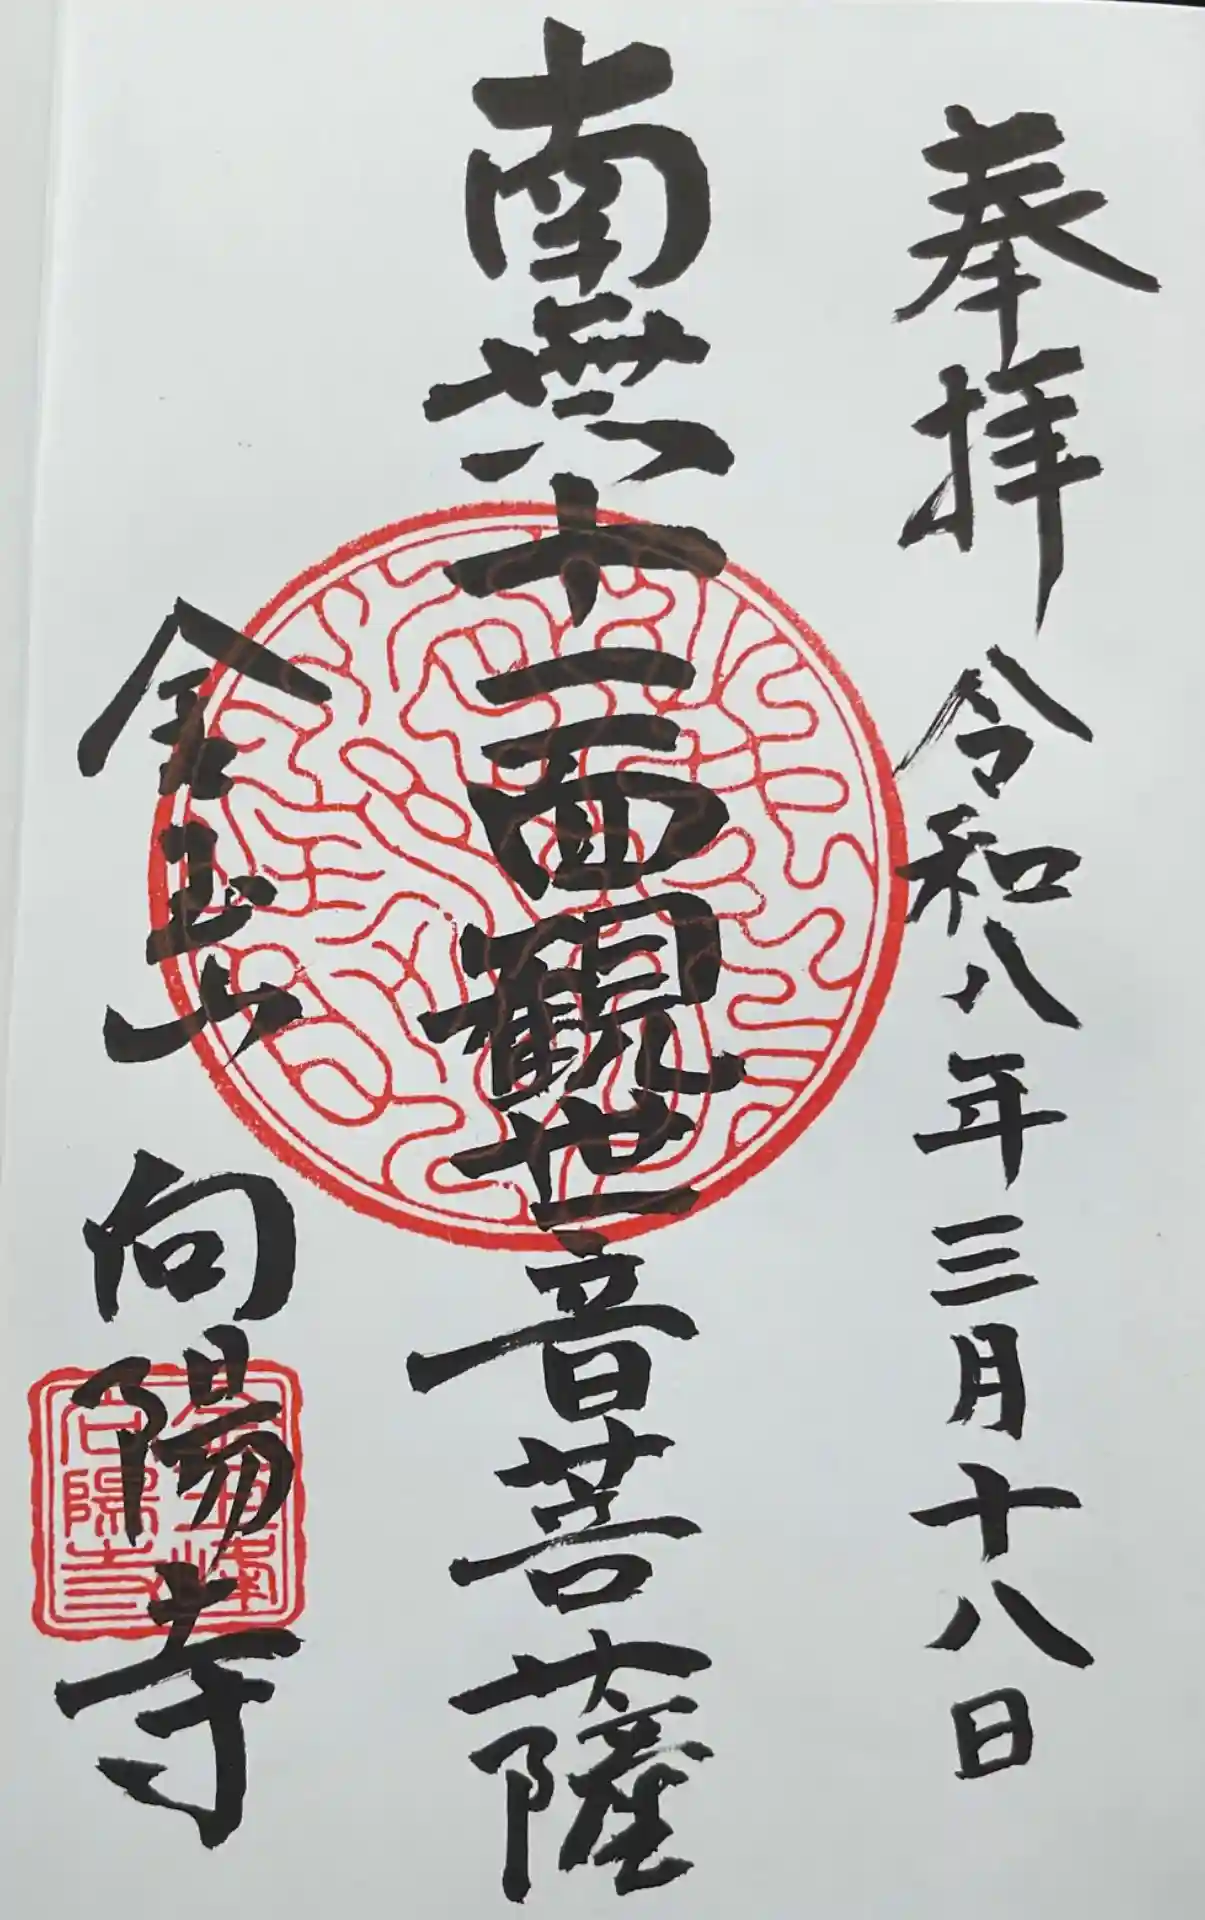 奉拝 令和八年三月十八日
南無十一面観世音菩薩
金玉山 向陽寺
向陽寺